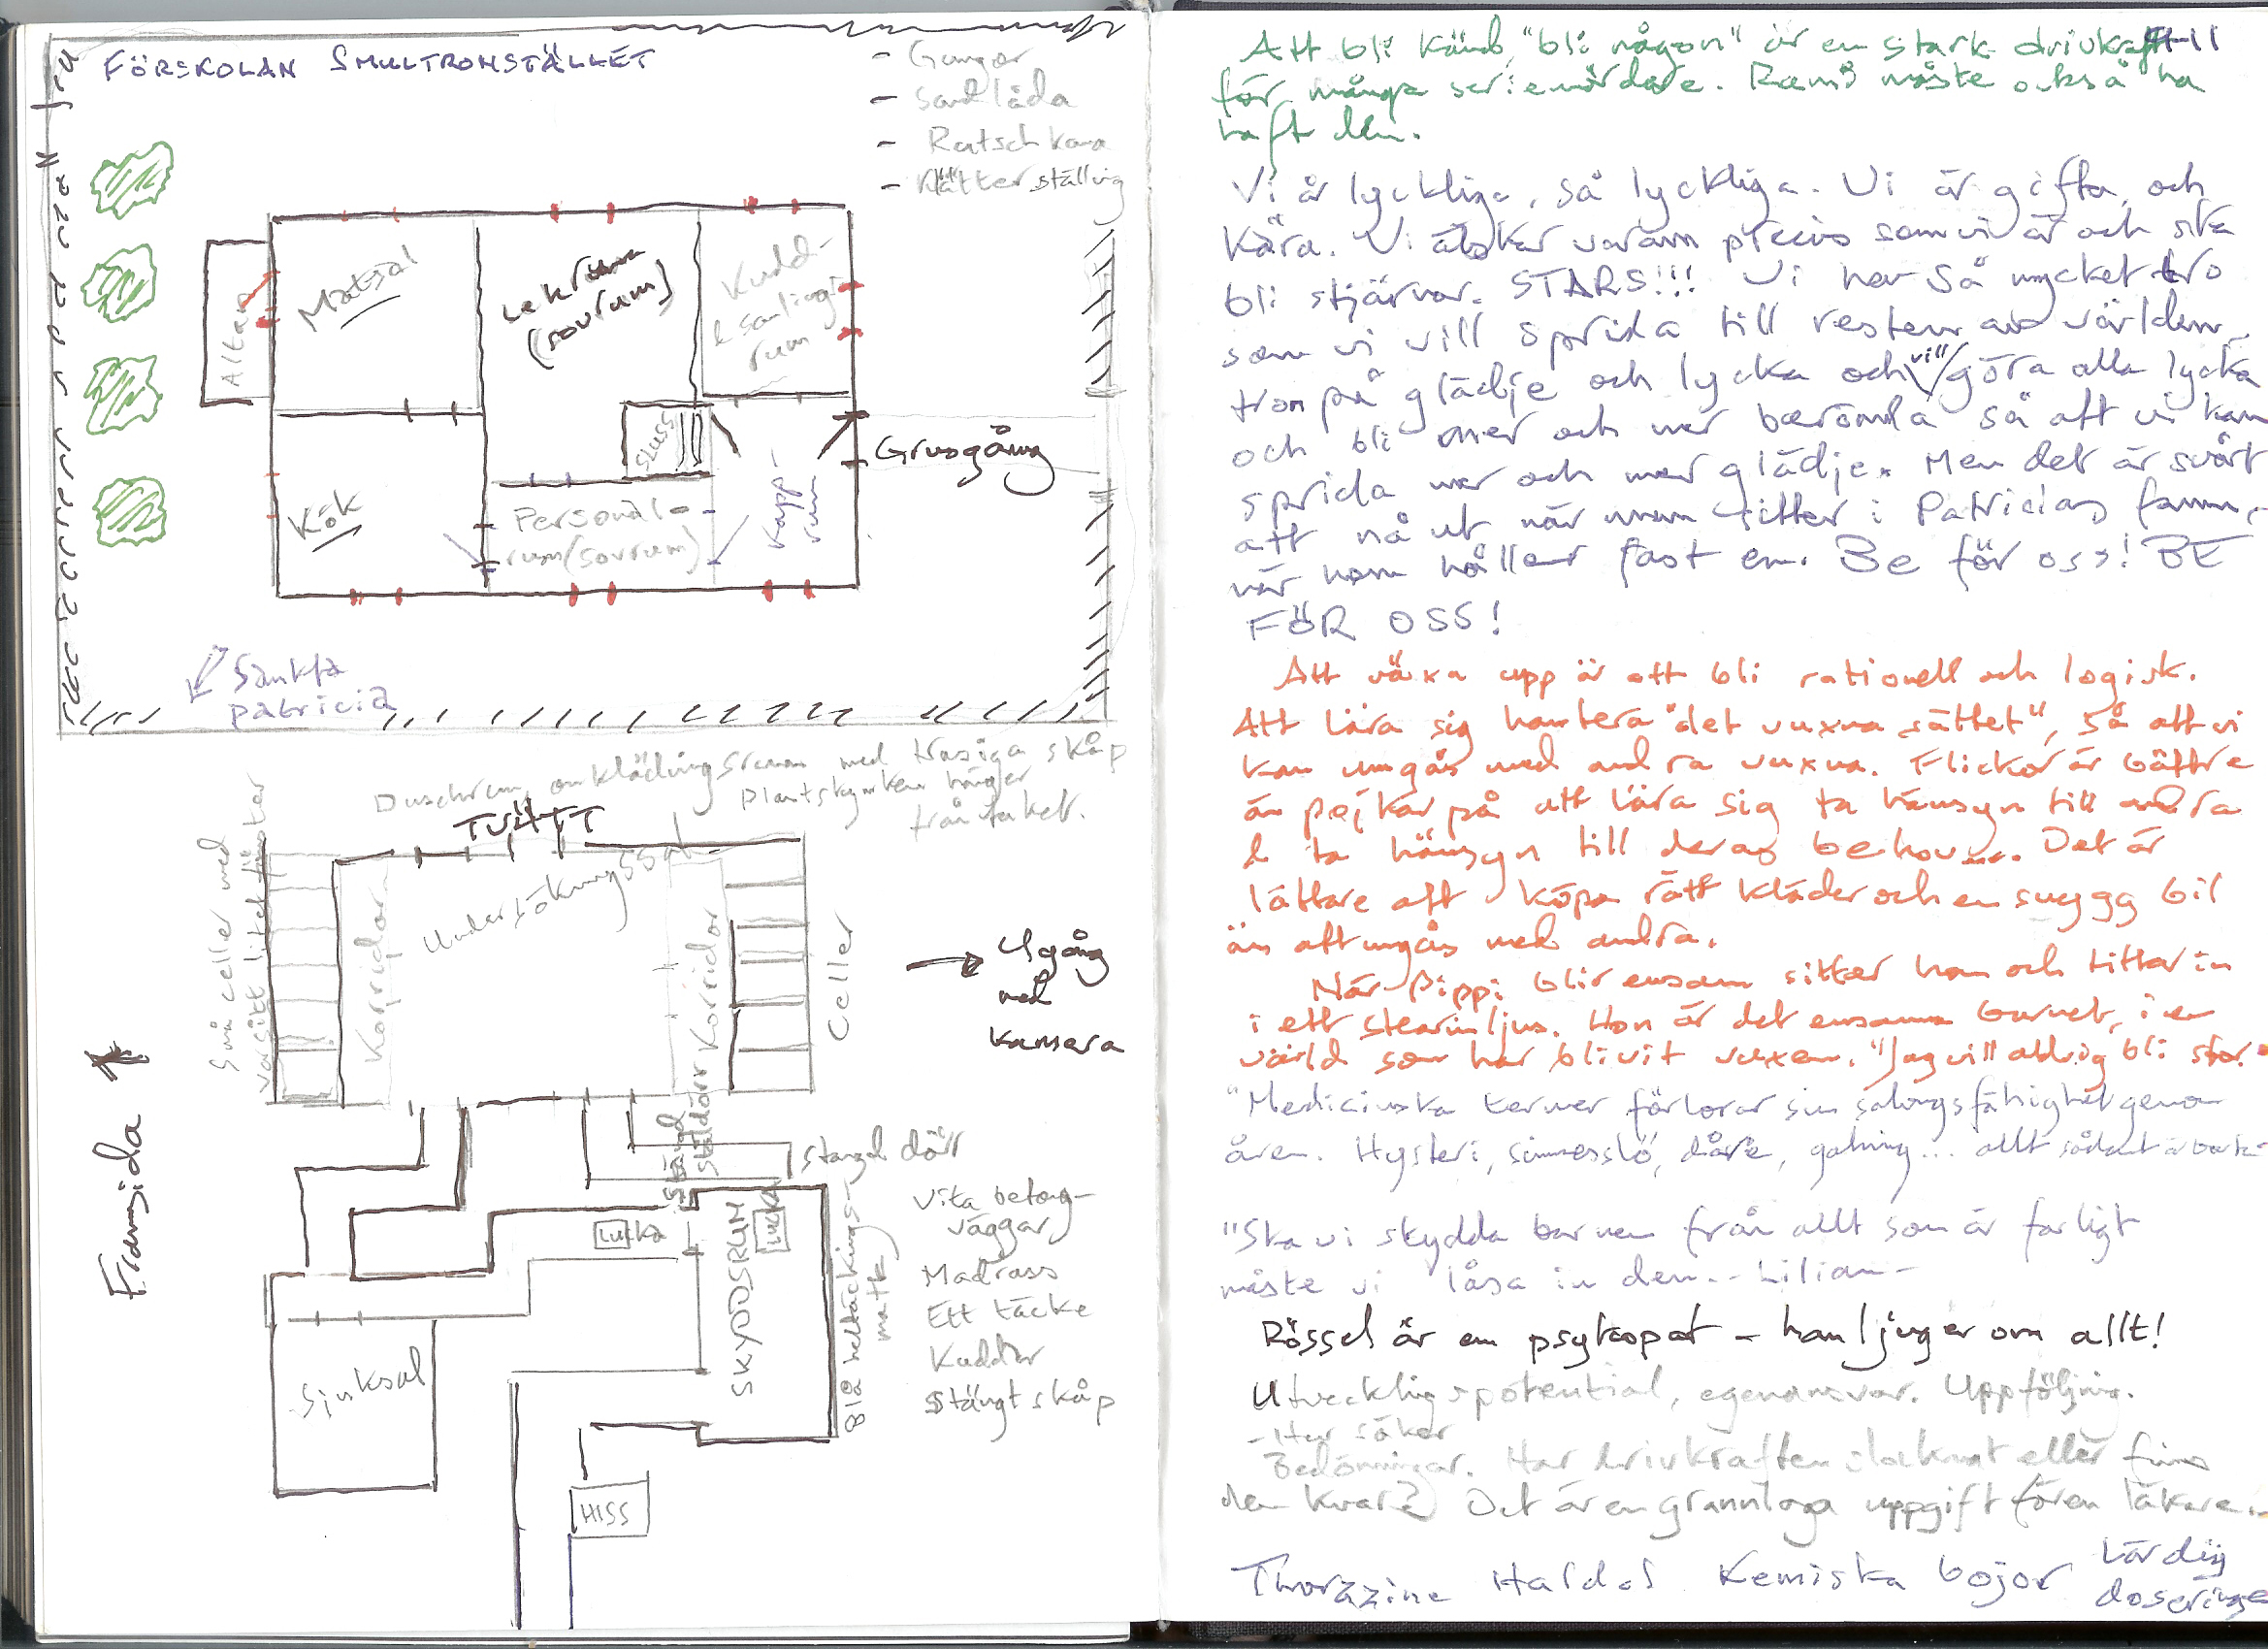 FÖRSKOLAN SMULTRONSTÄLLET
- Gungor
- Sandlåda
- Rutschkana
- Klätterställnig
Altan
Matsal
Lekrum
(sovrum)
Kudd-
& samlings
rum
Sluss
Grusgång
Kök
Personal-
rum (sovrum)
Kapp-
rum
Sankta
patricia
Duschrum, omklädningsrum med trasiga skåp
Plastskynken hänger
från taket.
TVÄTT
Små celler med
varsitt litet fönster
Korridor
Undersökningssal
Korridor
Celler
Utgång
med
kamera
Framsida
Stängd
ståldörr
Stängd dörr
Lucka
SKYDDSRUM
Lucka
Blå heltäcknings-
matta
Vita betong-
väggar
Madrass
Ett täcke
Kuddar
Stängt skåp
Sjuksal
HISS
Att bli känd, "bli någon" är en stark drivkraft till
för många seriemördare. måste också ha
haft den.
Vi är lyckliga, så lyckliga. Vi är gifta, och
kära. Vi älskar varann precis som vi är och ska
bli stjärnor. STARS!!! Vi har så mycket tro
som vi vill sprida till resten av världen.
tron på glädje och lycka och vill göra alla lycka
och bli mer och mer berömda så att vi kan
sprida mer och mer glädje. Men det är svårt
att nå ut när man sitter i Patricias famn,
när hon håller fast en. Be för oss! BE
FÖR OSS!
Att växa upp är att bli rationell och logisk.
Att lära sig hantera "det vuxna sättet", så att vi
kan umgås med andra vuxna. Flickor är bättre
än pojkar på att lära sig ta hänsyn till andra
& ta hänsyn till deras behov... Det är
lättare att köpa rätt kläder och en snygg bil
än att umgås med andra.
När Pippi blir ensam sitter hon och tittar in
i ett stearinljus. Hon är det ensamma barnet, i en
värld som har blivit vuxen. "Jag vill aldrig bli stor."
"Medicinska termer förlorar sin salongsfähighet genom
åren. Hysteri, sinnesslö, dåre, galning... allt sådant är borta
"Ska vi skydda barnen från allt som är farligt
måste vi låsa in dem. - Lilian -
Rössel är en psykopat - han ljuger om allt!
Utvecklingspotential, egenansvar. Uppföljning.
- Hur säker
Bedömningar. Har drivkraften slocknat eller finns
den kvar? Det är en grannlaga uppgift för en läkare...
Thorazine Haldol Kemiska bojor Lär dig
doseringe